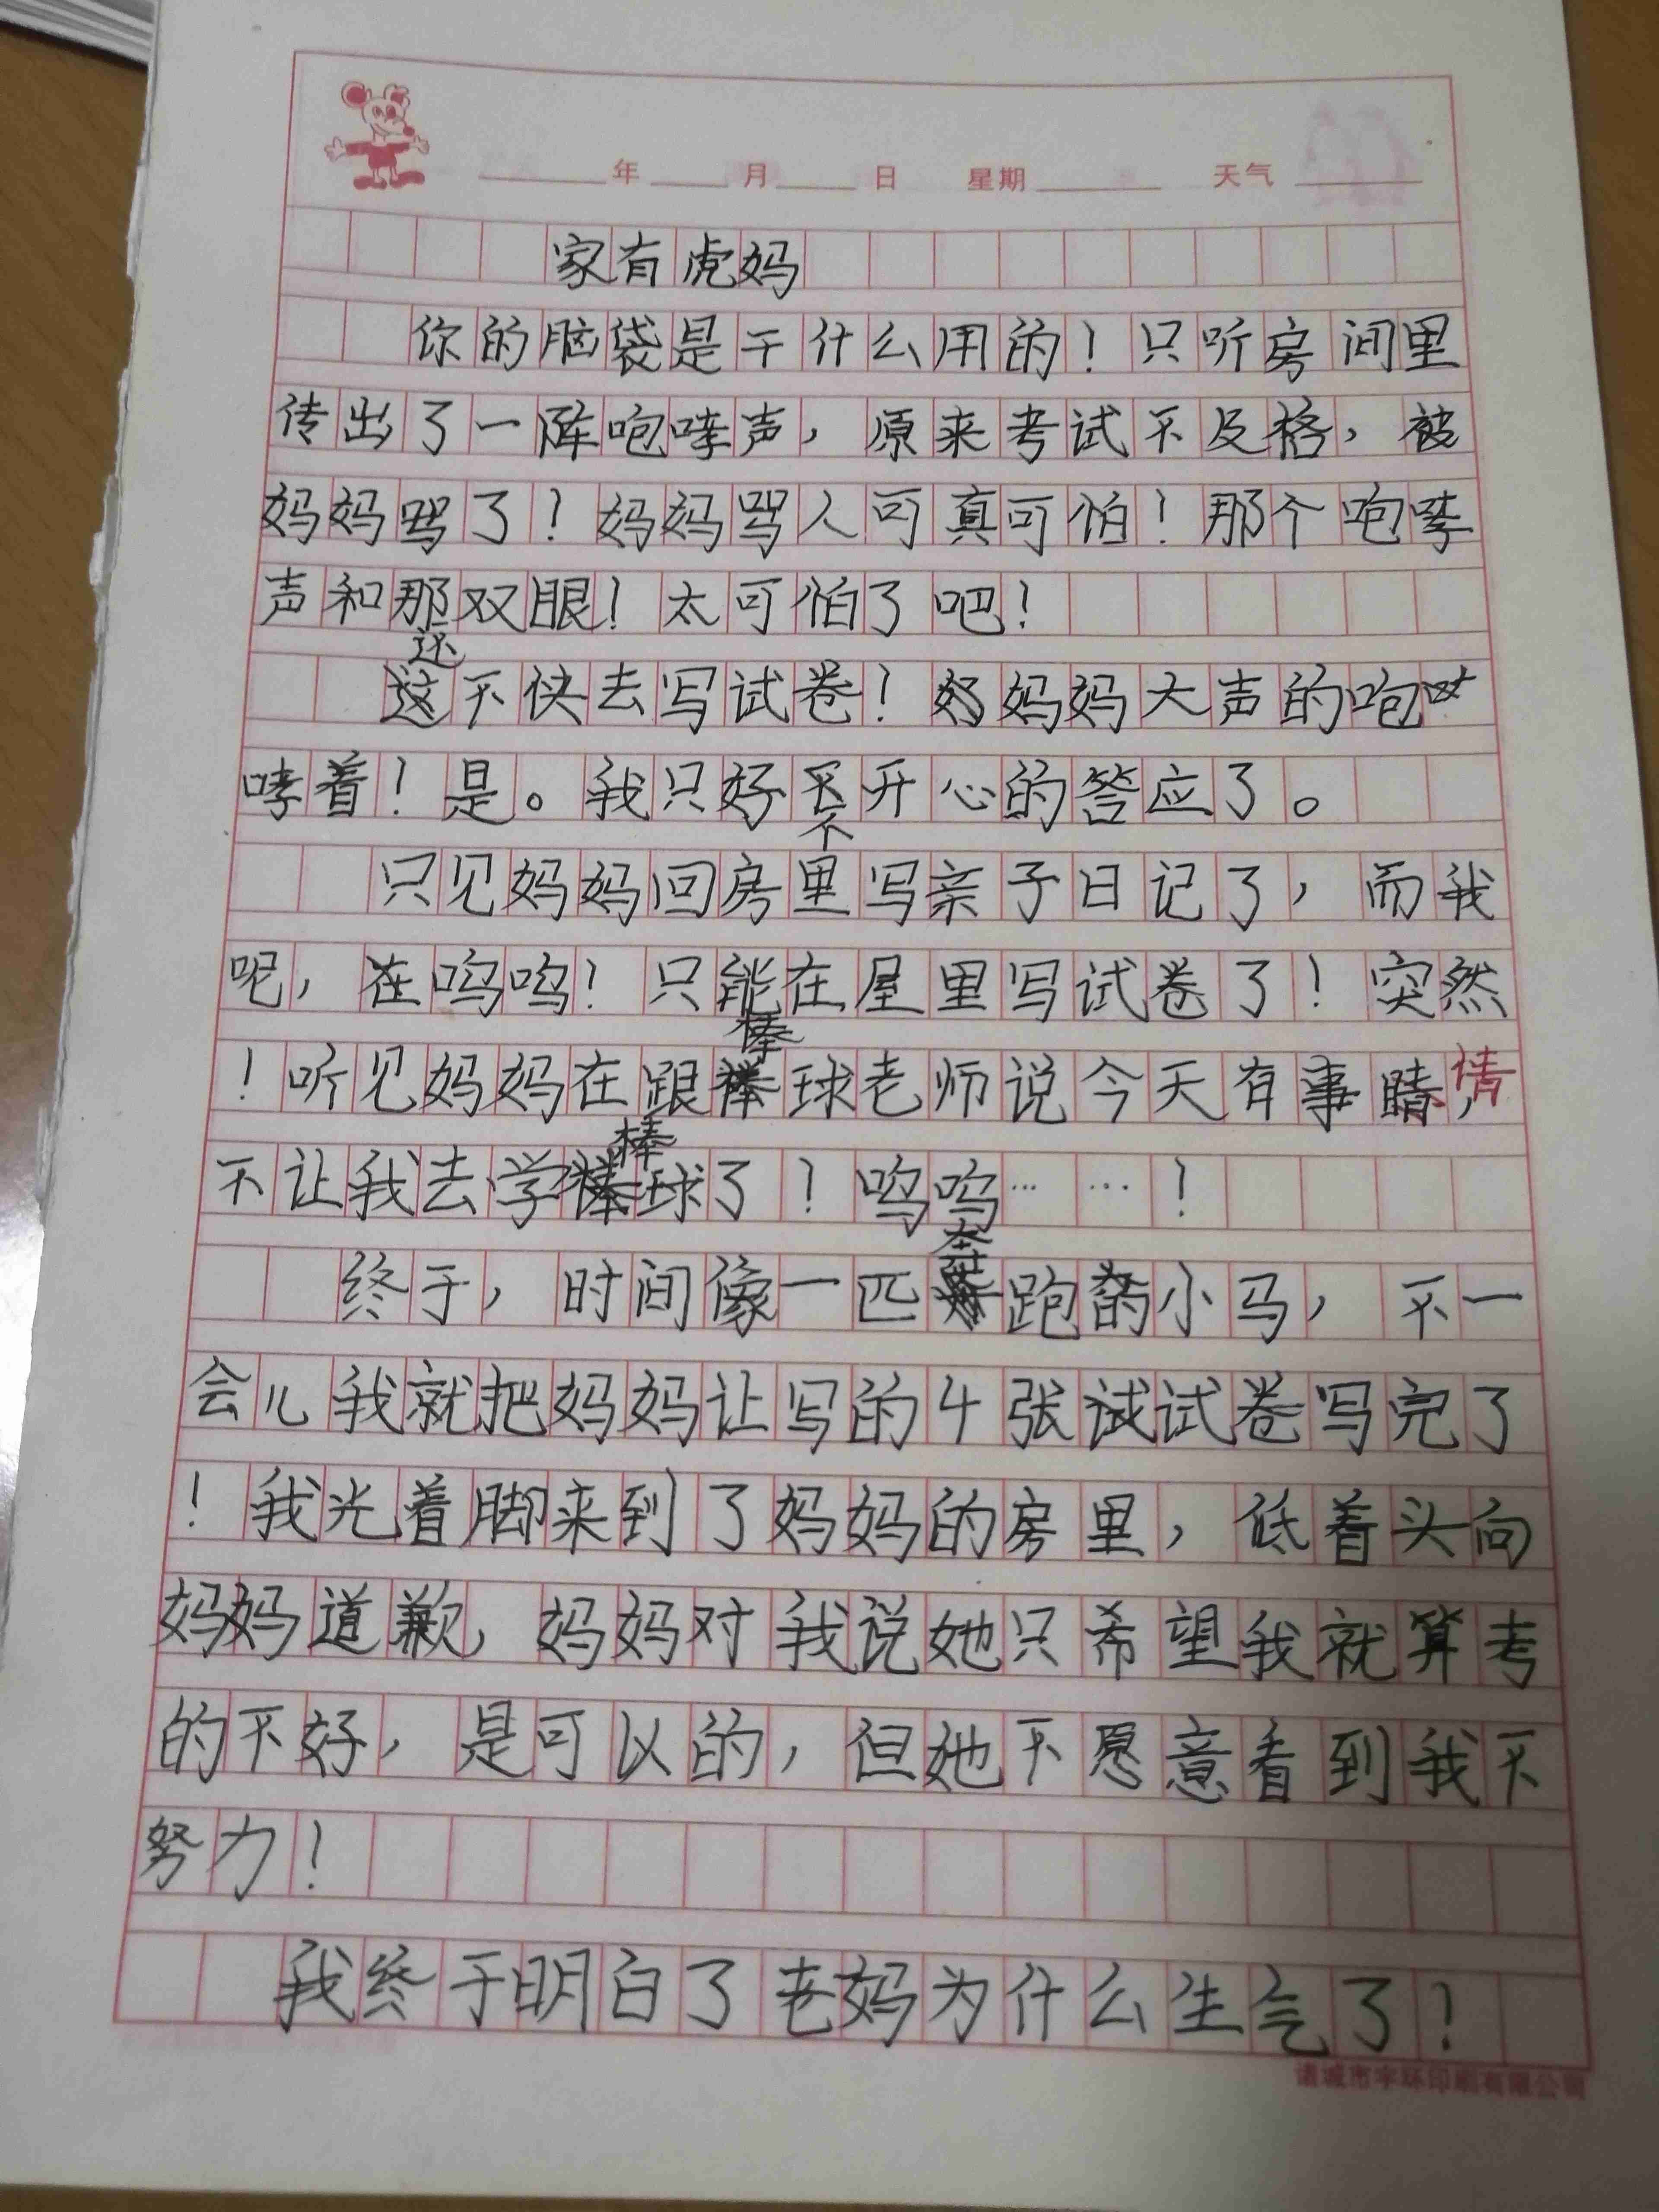 年 月 日 星期 天气
家有虎妈
你的脑袋是干什么用的！只听房间里
传出了一阵咆哮声，原来考试不及格，被
妈妈骂了！妈妈骂人可真可怕！那个咆哮
声和那双眼！太可怕了吧！
还不快去写试卷！妈妈大声的咆
哮着！是。我只好不开心的答应了。
只见妈妈回房里写亲子日记了，而我
呢，在呜呜！只能在屋里写试卷了！突然
！听见妈妈在跟棒球老师说今天有事情，
不让我去学棒球了！呜呜……！
终于，时间像一匹奔跑的小马，不一
会儿我就把妈妈让写的4张试试卷写完了
！我光着脚来到了妈妈的房里，低着头向
妈妈道歉，妈妈对我说她只希望我就算考
的不好，是可以的，但她不愿意看到我不
努力！
我终于明白了老妈为什么生气了！
诸城市宇环印刷有限公司